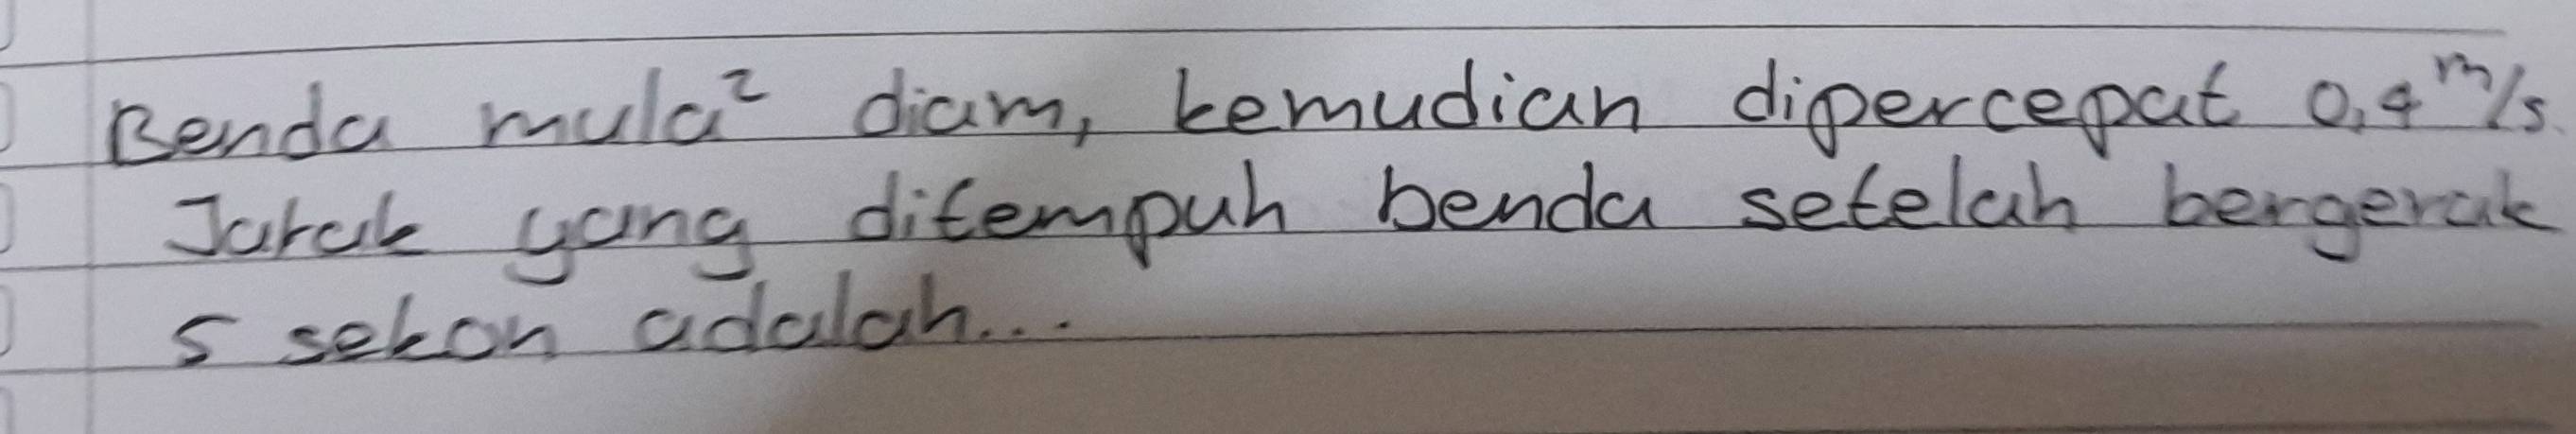 Benda mula² diam, kemudian dipercepat 0,4 m/s.
Jarak yang ditempuh benda setelah bergerak
5 sekon adalah...